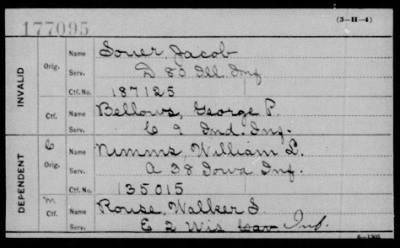 177095
(3-H-4)
INVALID
Orig.
Name Souer, Jacob
Serv. D 83 Ill. Inf
Ctf. No. 187125
Ctf.
Name Bellows, George P.
Serv. C 9 Ind. Inf.
DEPENDENT
C
Orig.
Name Nimms, William L.
Serv. A 38 Iowa Inf.
Ctf. No. 135015
m
Ctf.
Name Rouse, Walker
Serv. E 2 Wis Cav Inf.